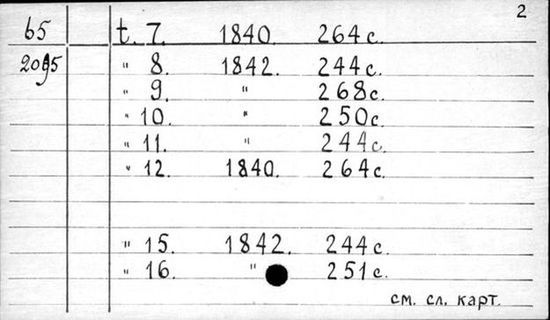 2
65 t. 7. 1840 264 с.
2095 " 8. 1842. 244 с.
" 9. " 268 с.
" 10. " 250 с.
" 11. " 244 с.
" 12. 1840. 264 с.
" 15. 1842. 244 с.
" 16. " 251 с.
см. сл. карт.